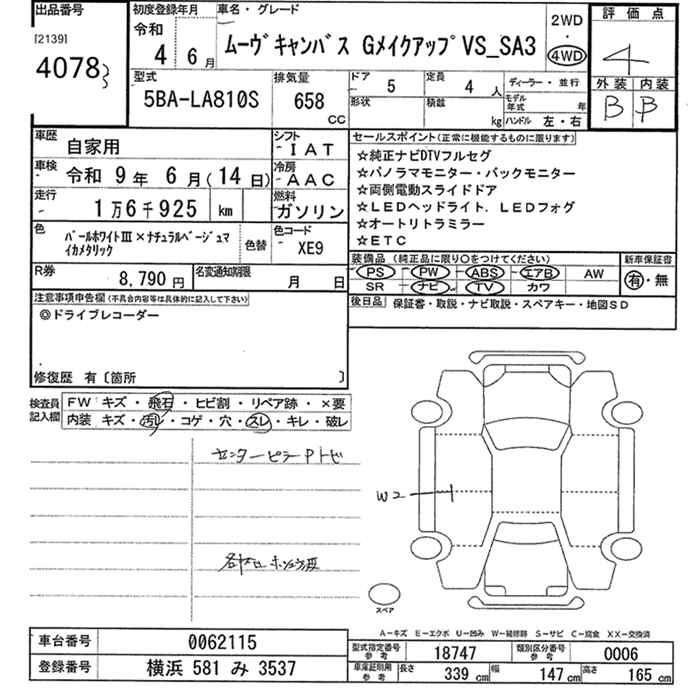 出品番号
[2139]
4078
初度登録年月
令和
4 6月
車名・グレード
ムーヴキャンバス GメイクアップVS_SA3
2WD
・
4WD
評価点
4
外装 内装
B B
型式
5BA-LA810S
排気量
658
CC
ドア 5 定員 4 人
形状 積載 kg
ディーラー・並行
モデル年式 年
ハンドル 左・右
車歴 自家用
シフト IAT
車検 令和 9年 6月(14日)
冷房 AAC
走行 1万6千925 km
燃料 ガソリン
色 パールホワイトⅢ×ナチュラルベージュマイカメタリック
色替
色コード XE9
R券 8,790円
名変通知期限 月 日
セールスポイント(正常に機能するものに限ります)
☆純正ナビDTVフルセグ
☆パノラマモニター・バックモニター
☆両側電動スライドドア
☆LEDヘッドライト、LEDフォグ
☆オートリトラミラー
☆ETC
装備品(純正品に限り○をつけてください)
PS PW ABS エアB AW
SR ナビ TV カワ
新車保証書
有・無
後日品 保証書・取説・ナビ取説・スペアキー・地図SD
注意事項申告欄(不具合内容等は具体的に記入して下さい)
◎ドライブレコーダー
修復歴 有〔箇所 〕
検査員記入欄
FW キズ・飛石・ヒビ割・リペア跡・×要
内装 キズ・汚レ・コゲ・穴・スレ・キレ・破レ
センターピラーPトビ
W2
スペア
A-キズ E-エクボ U-凹み W-補修跡 S-サビ C-腐食 XX-交換済
車台番号 0062115
登録番号 横浜 581 み 3537
型式指定番号 参考 18747
類別区分番号 参考 0006
車庫証明用 参考 長さ 339 cm 幅 147 cm 高さ 165 cm